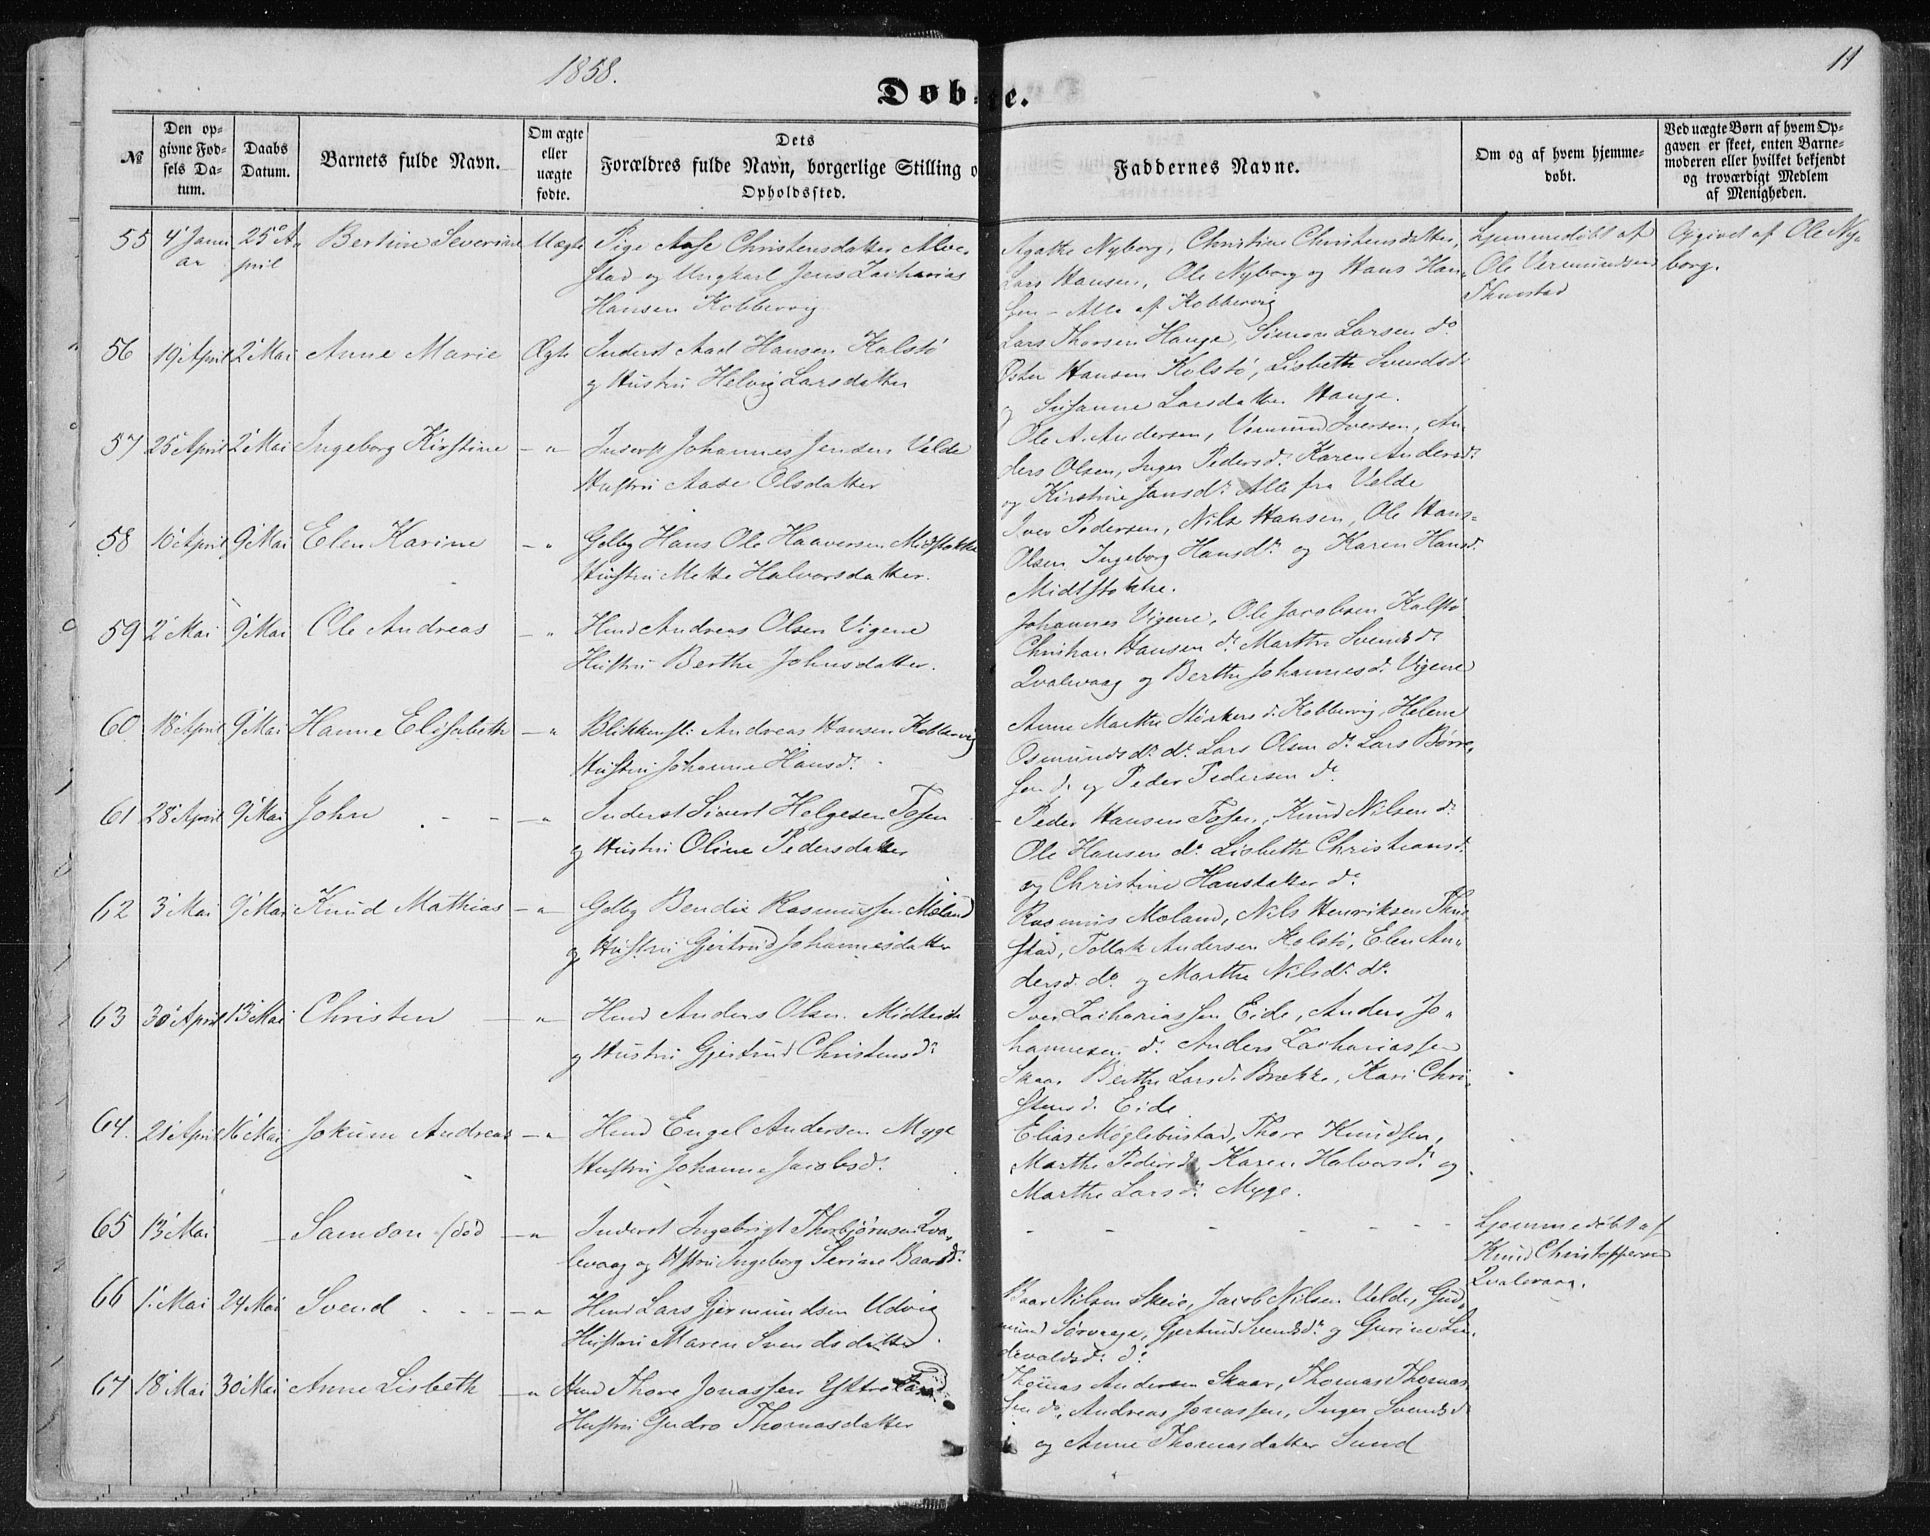 1858.
11
Døbte.
№
Den op-
givne Fød-
sels Da-
tum.
Daabs
Datum.
Barnets fulde Navn.
Om ægte
eller
uægte
fødte.
Dets
Forældres fulde Navn, borgerlige Stilling o
Opholdssted.
Faddernes Navne.
Om og af hvem hjemme-
døbt.
Ved uægte Børn af hvem Op-
gaven er skeet, enten Barne-
moderen eller hvilket bekjendt
og troværdigt Medlem
af Menigheden.
55 4 Janu
ar 25 A
pril Bertine Severine Uægte Pige Aase Christensdatter
stad og Ungkarl Jens Zacharias
Hansen Kobbervig
Agathe Nyborg, Christine Christensdatter,
Lars Hansen, Ole Nyborg og Hans Han-
sen - Alle af Kobbervig
Hjemmedøbt af
Ole Vermundsen
Thuestad
Opgivet af Ole Ny-
borg.
56 19 April 2 Mai Anne Marie Ægte Inderst Aad Hansen Kalstø
og Hustru Helvig Larsdatter
Lars Thorsen Hauge, Simon Larsen do
Hansen Kolstø, Lisbeth Svendsd:
og Susanne Larsdatter Hauge.
57 25 April 2 Mai Ingeborg Kirstine - " Inderst Johannes Jensen Velde
Hustru Aase Olsdatter
Ole A. Andersen, Vermund Iversen, An-
ders Olsen, Inger Pedersd: Karen Andersd:
og Kirstine Jansd: Alle fra Velde
58 10 April 9 Mai Elen Karine - " Gdbg Hans Ole Haaversen Midstokke
Hustru Mette Halvorsdatter.
Iver Pedersen, Nils Hansen, Ole Hans-
Olsen Ingeborg Hansd: og Karen Hansd:
Midtstokke.
59 2 Mai 9 Mai Ole Andreas - " Hmd Andreas Olsen Vigene
Hustru Berthe Johnsdatter.
Johannes Vigene, Ole Jacobsen Kalstø
Christian Hansen do Marthe Svendsd:
Qvalevaag og Berthe Johannesd: Vigene
60 18 April 9 Mai Hanne Elisabeth - " Blikkensl: Andreas Hansen Kobbervig
Hustru Johanne Hansd:
Anne Marthe Størkersd: Kobbervig, Helene
Osmundsd: do Lars Olsen do Lars Børre-
sen do og Peder Pedersen do
61 28 April 9 Mai John - - - " Inderst Sivert Helgesen Tosen
og Hustru Oline Pedersdatter
Peder Hansen Tosen, Knud Nilsen do
Ole Hansen do Lisbeth Christiansd:
og Christine Hansdatter do
62 3 Mai 9 Mai Knud Mathias - " Gdbg Bendix Rasmussen Møland
og Hustru Gjertrud Johannesdatter
Rasmus Møland, Nils Henriksen Thue-
stad, Tollak Andersen Kolstø, Elen An-
dersd: do og Marthe Nilsd: do
63 30 April 13 Mai Christen - " Hmd Anders Olsen
og Hustru Gjertrud Christensd:
Iver Zachariassen Eide, Anders Jo-
hannesen do Anders Zachariassen
Skaar Berthe Larsd: Brække, Kari Chri-
stensd: Eide
64. 21 April 16 Mai Jokum Andreas - " Hmd Engel Andersen Myge
Hustru Johanne Jacobsd:
Elias Møglebustad, Thore Knudsen,
Marthe Pedersd: Karen Halvorsd: og
Marthe Larsd: Myge.
65 13 Mai - Samson (død - " Inderst Ingebrigt Thorbjørnsen Qva-
levaag og Hstru Ingeborg Serine Baardsd:
- - - - - -
Hjemmedøbt af
Knud Christoffersen
Qvalevaag.
66 1 Mai 24 Mai Svend - - - - " Hmd Lars Gjermundsen Udvig
Hustru Maren Svendsdatter.
Baar Nilsen Skeie, Jacob Nilsen Velde, Gud-
mund Sørvaage, Gjertrud Svendsd: og Gurine
devaldsd: do
67 18 Mai 30 Mai Anne Lisbeth - " Hmd Thore Jonassen Yttreland
Hustru Gudro Thomasdatter
Thomas Andersen Skaar, Thomas Thomas-
sen do, Andreas Jonassen, Inger Svendsd:
og Anne Thomasdatter Sund